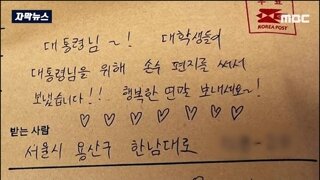 자막뉴스
우표
KOREA POST
MBC
대통령님~! 대학생들이
대통령님을 위해 손수 편지를 써서
보냈습니다!!! 행복한 연말 보내세요~!
받는 사람
서울시 용산구 한남대로